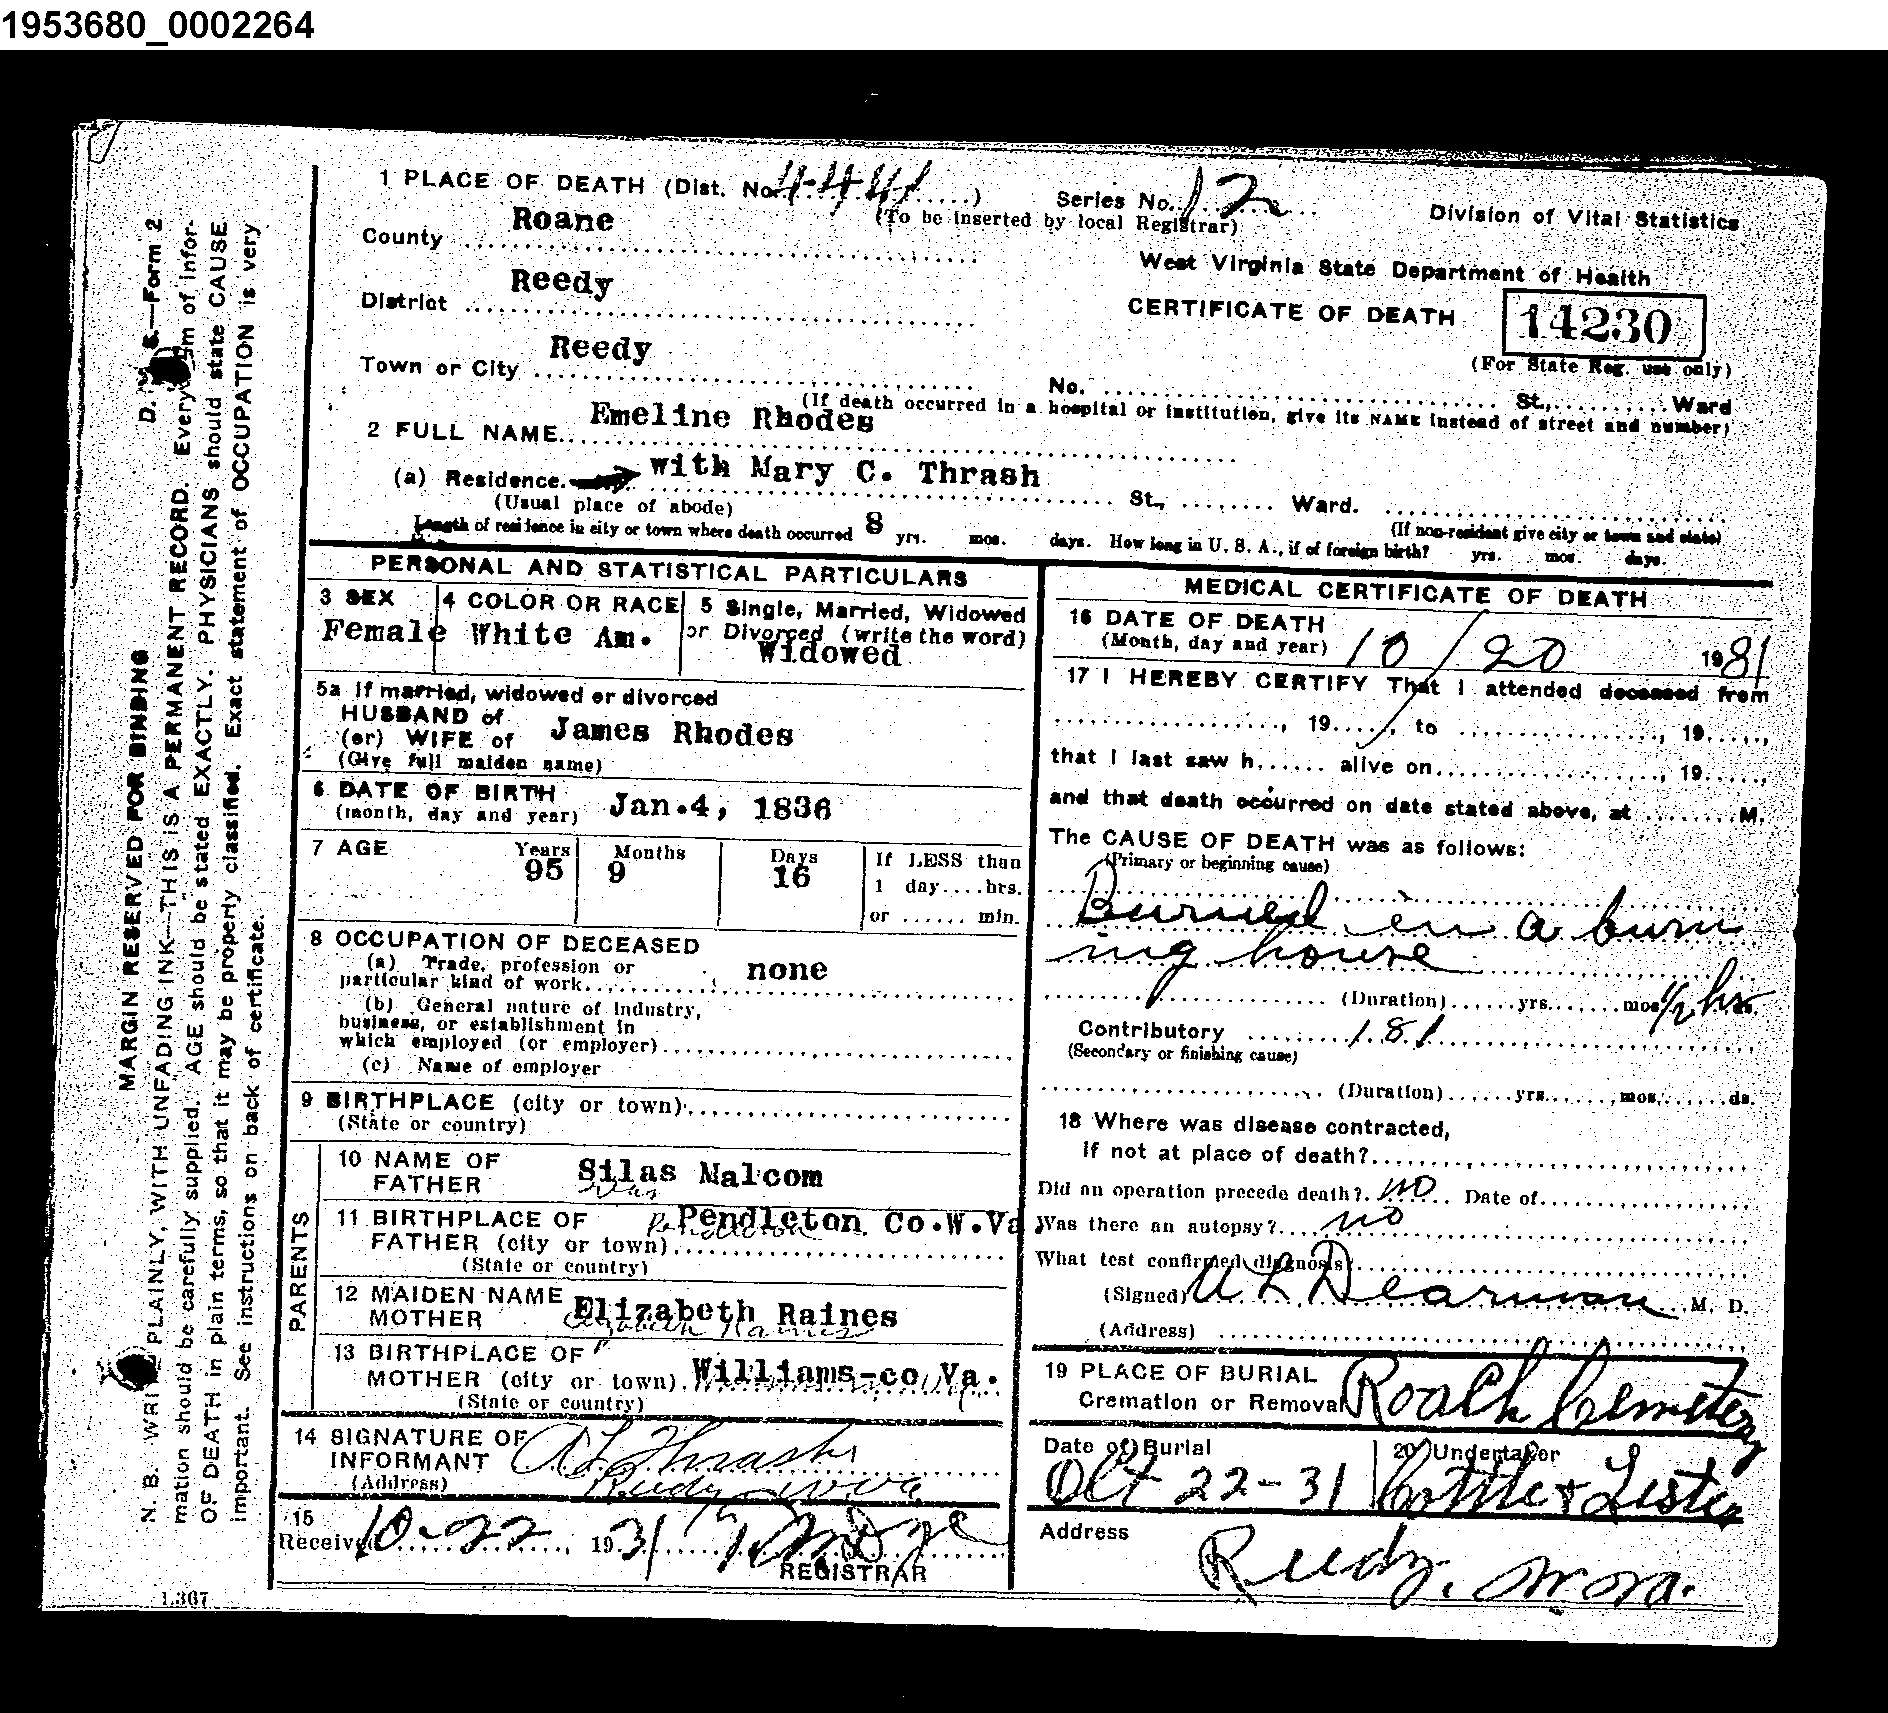 1953680_0002264
1 PLACE OF DEATH (Dist. No. 4441) Series No. 12
(To be inserted by local Registrar)
Division of Vital Statistics
County Roane
West Virginia State Department of Health
District Reedy
CERTIFICATE OF DEATH 14230
(For State Reg. use only)
Town or City Reedy
No. St., Ward
(If death occurred in a hospital or institution, give its NAME instead of street and number)
2 FULL NAME Emeline Rhodes
(a) Residence. with Mary C. Thrash St., Ward.
(Usual place of abode) (If non-resident give city or town and state)
Length of residence in city or town where death occurred 8 yrs. mos. days. How long in U. S. A., if of foreign birth? yrs. mos. days.
PERSONAL AND STATISTICAL PARTICULARS
3 SEX
Female
4 COLOR OR RACE
White Am.
5 Single, Married, Widowed
or Divorced (write the word)
Widowed
5a If married, widowed or divorced
HUSBAND of
(or) WIFE of James Rhodes
(Give full maiden name)
6 DATE OF BIRTH
(month, day and year) Jan.4, 1836
7 AGE Years Months Days
95 9 16
If LESS than
1 day....hrs.
or ...... min.
8 OCCUPATION OF DECEASED
(a) Trade, profession or
particular kind of work. none
(b) General nature of Industry,
business, or establishment in
which employed (or employer)
(c) Name of employer
9 BIRTHPLACE (city or town)
(State or country)
PARENTS
10 NAME OF
FATHER Silas Malcom
11 BIRTHPLACE OF
FATHER (city or town) Pendleton Co.W.Va
(State or country)
12 MAIDEN NAME
MOTHER Elizabeth Raines
Elizabeth Raines
13 BIRTHPLACE OF
MOTHER (city or town) Williams-co Va.
(State or country)
14 SIGNATURE OF
INFORMANT Thrash
(Address) Reedy W Va
15
Received 10-22, 1931
REGISTRAR
MEDICAL CERTIFICATE OF DEATH
16 DATE OF DEATH
(Month, day and year) 10/20 1931
17 I HEREBY CERTIFY That I attended deceased from
, 19...., to , 19....,
that I last saw h...... alive on , 19....,
and that death occurred on date stated above, at M.
The CAUSE OF DEATH was as follows:
(Primary or beginning cause)
Burned in a burn
ing house
(Duration) yrs. mos. 1/2 hr ds.
Contributory 181
(Secondary or finishing cause)
(Duration) yrs. mos. ds.
18 Where was disease contracted,
if not at place of death?
Did an operation precede death? no Date of
Was there an autopsy? no
What test confirmed diagnosis?
(Signed) U L Dearman M. D.
(Address)
19 PLACE OF BURIAL
Cremation or Removal Roach Cemetery
Date of Burial
Oct 22-31
20 Undertaker
Cottle & Lester
Address
Reedy, W Va.
D. V. S.—Form 2
MARGIN RESERVED FOR BINDING
N. B. WRITE PLAINLY, WITH UNFADING INK—THIS IS A PERMANENT RECORD. Every item of infor-
mation should be carefully supplied. AGE should be stated EXACTLY. PHYSICIANS should state CAUSE
OF DEATH in plain terms, so that it may be properly classified. Exact statement of OCCUPATION is very
important. See instructions on back of certificate.
L367